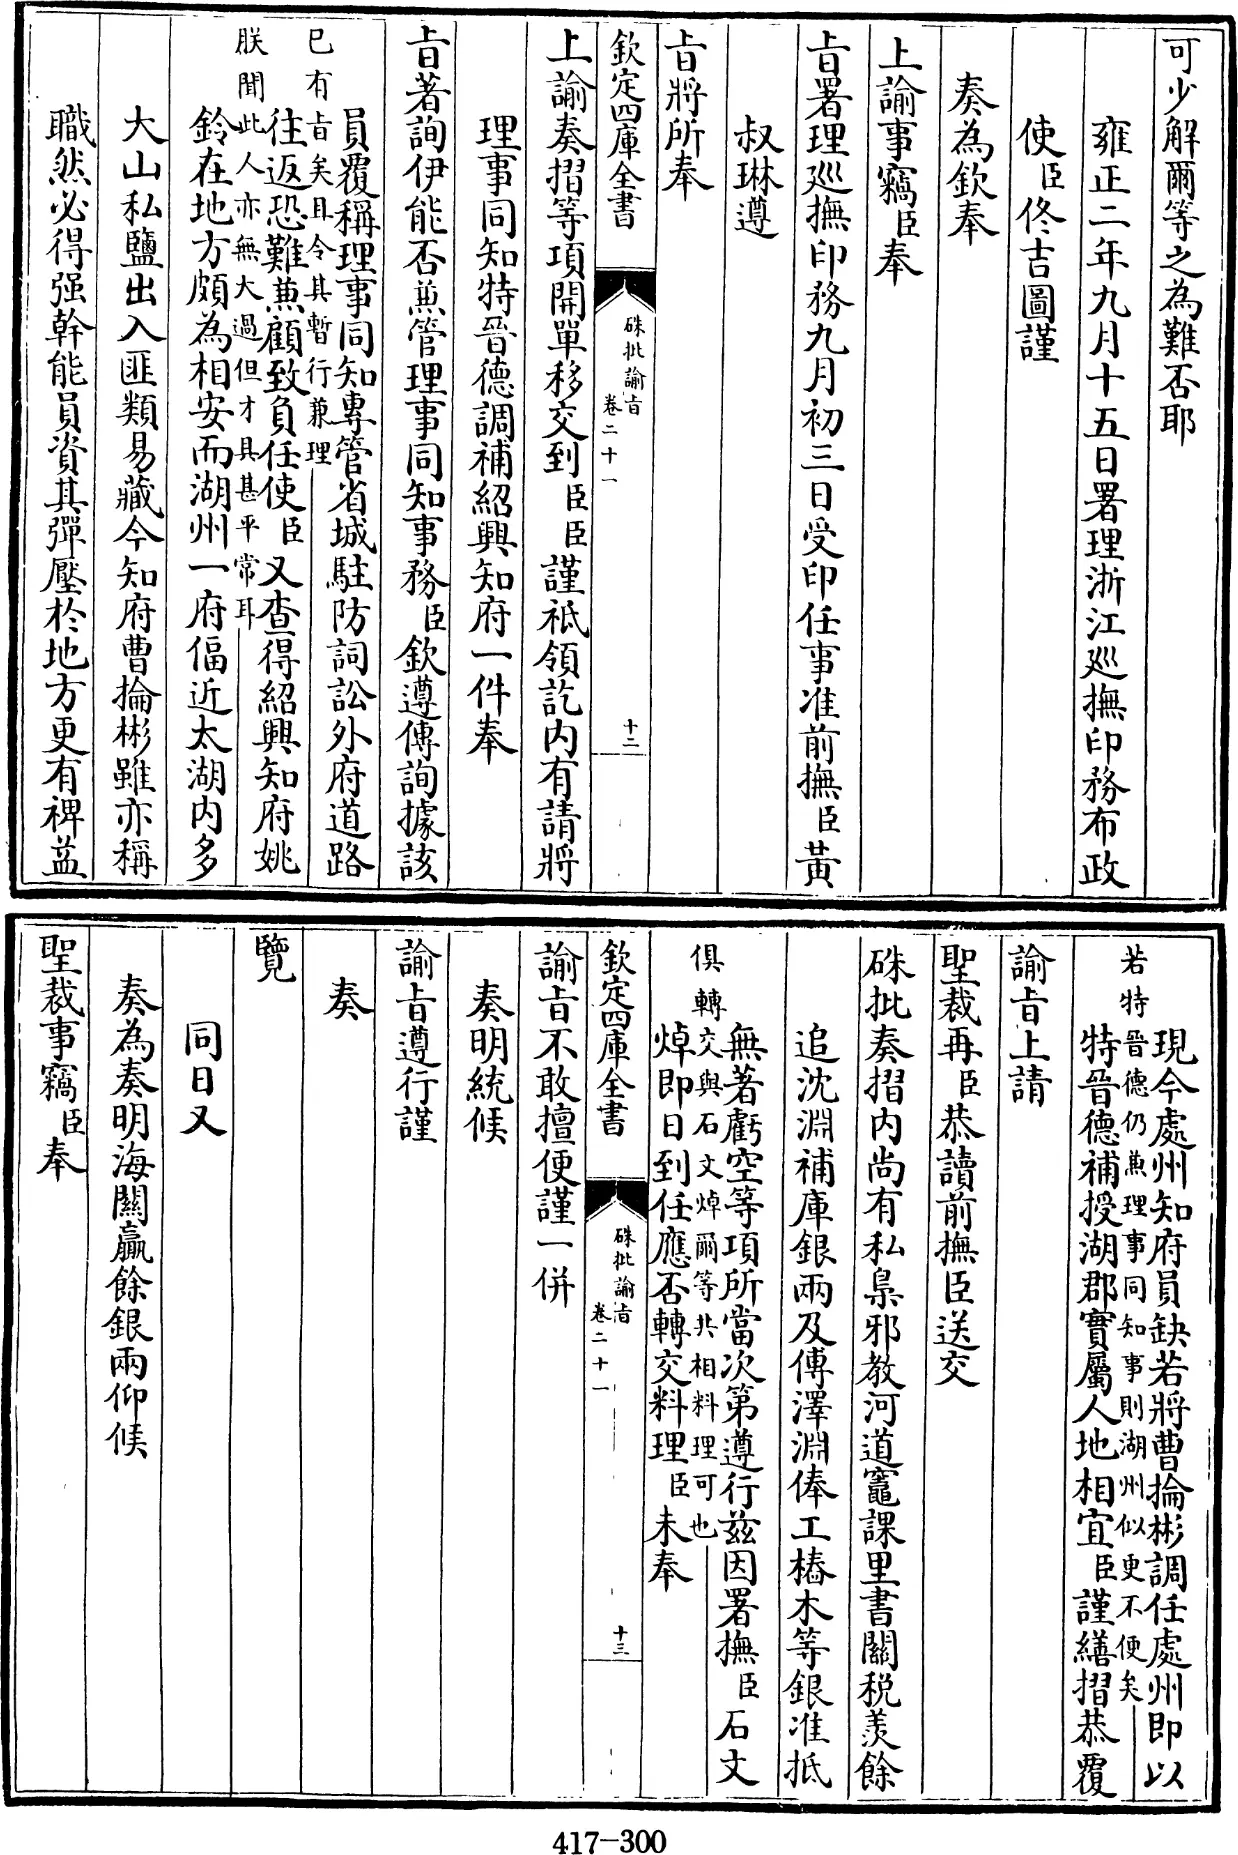 可少解爾等之為難否耶
雍正二年九月十五日署理浙江廵撫印務布政
使臣佟吉圖謹
奏為欽奉
上諭事竊臣奉
旨署理廵撫印務九月初三日受印任事准前撫臣黃
叔琳遵
旨將所奉
欽定四庫全書
硃批諭旨
卷二十一
十二
上諭奏摺等項開單移交到臣臣謹祗領訖内有請將
理事同知特晉德調補紹興知府一件奉
旨著詢伊能否兼管理事同知事務臣欽遵傳詢據該
員覆稱理事同知專管省城駐防詞訟外府道路
已有旨矣且令其暫行兼理
往返恐難兼顧致負任使臣又查得紹興知府姚
朕聞此人亦無大過但才具甚平常耳
鈴在地方頗為相安而湖州一府偪近太湖内多
大山私鹽出入匪類易藏今知府曹掄彬雖亦稱
職然必得强幹能員資其彈壓於地方更有裨益
現今處州知府員缺若將曹掄彬調任處州即以
若特晉德仍兼理事同知事則湖州似更不便矣
特晉德補授湖郡實屬人地相宜臣謹繕摺恭覆
諭旨上請
聖裁再臣恭讀前撫臣送交
硃批奏摺内尚有私梟邪教河道竈課里書關税羨餘
追沈淵補庫銀兩及傅澤淵俸工樁木等銀准抵
無著虧空等項所當次第遵行茲因署撫臣石文
俱轉交與石文焯爾等共相料理可也
焯即日到任應否轉交料理臣未奉
欽定四庫全書
硃批諭旨
卷二十一
十三
諭旨不敢擅便謹一併
奏明統候
諭旨遵行謹
奏
覽
同日又
奏為奏明海關贏餘銀兩仰候
聖裁事竊臣奉
417-300